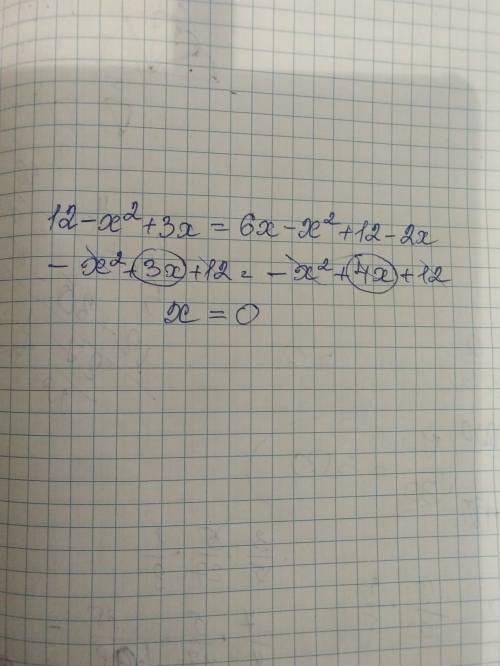 12-x²+3x = 6x-x²+12-2x
- x²+3x+12 = -x²+4x+12
x = 0